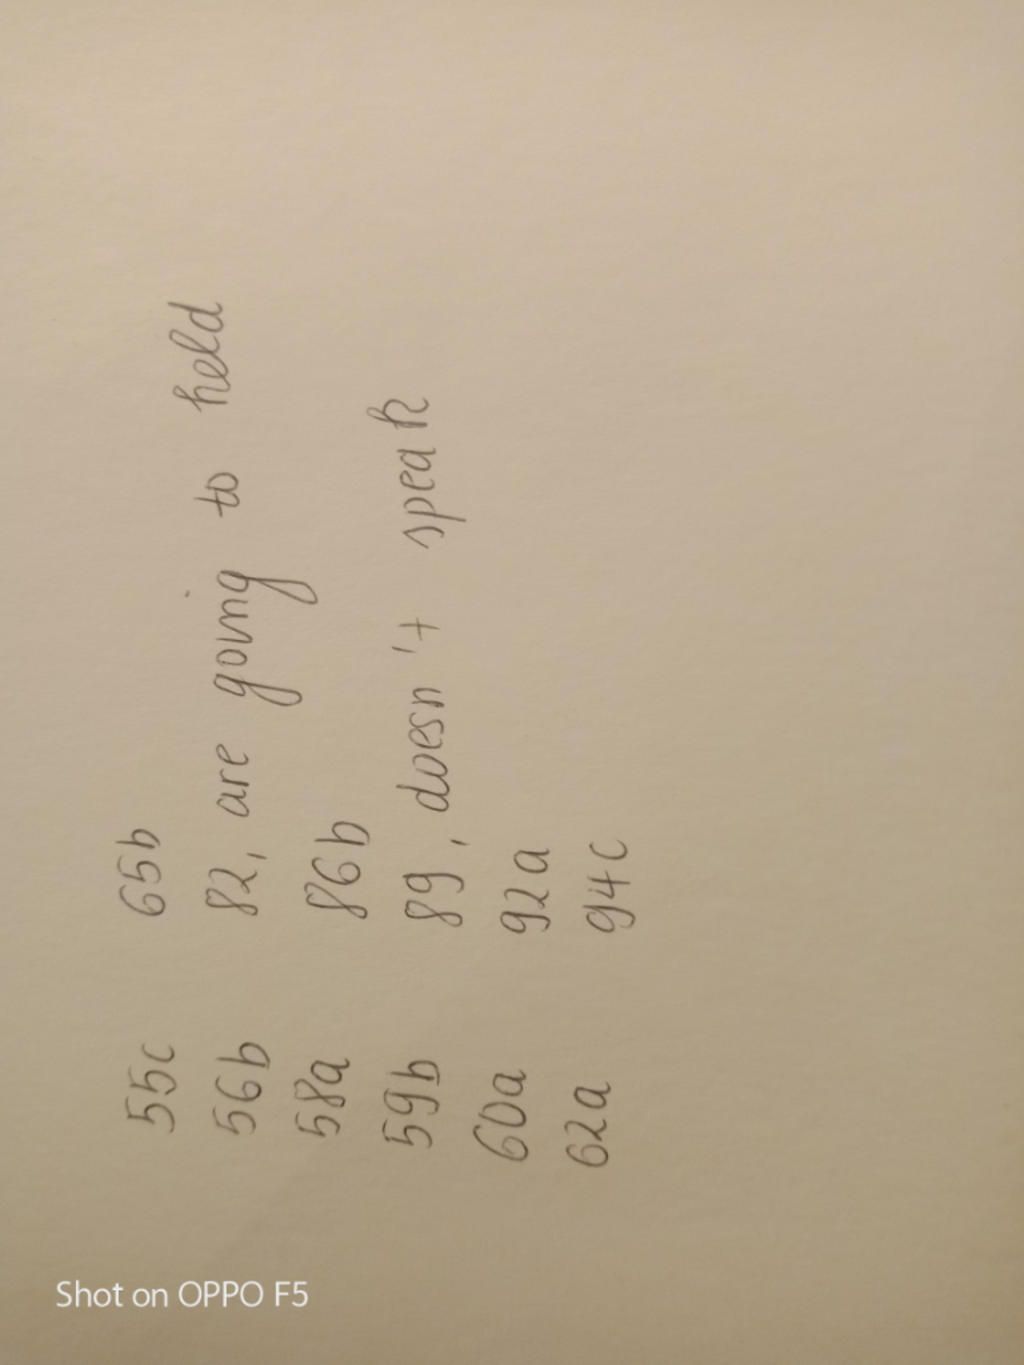 55c 65b
56b 82, are going to held
58a 86b
59b 89, doesn't speak
60a 92a
62a 94c
Shot on OPPO F5